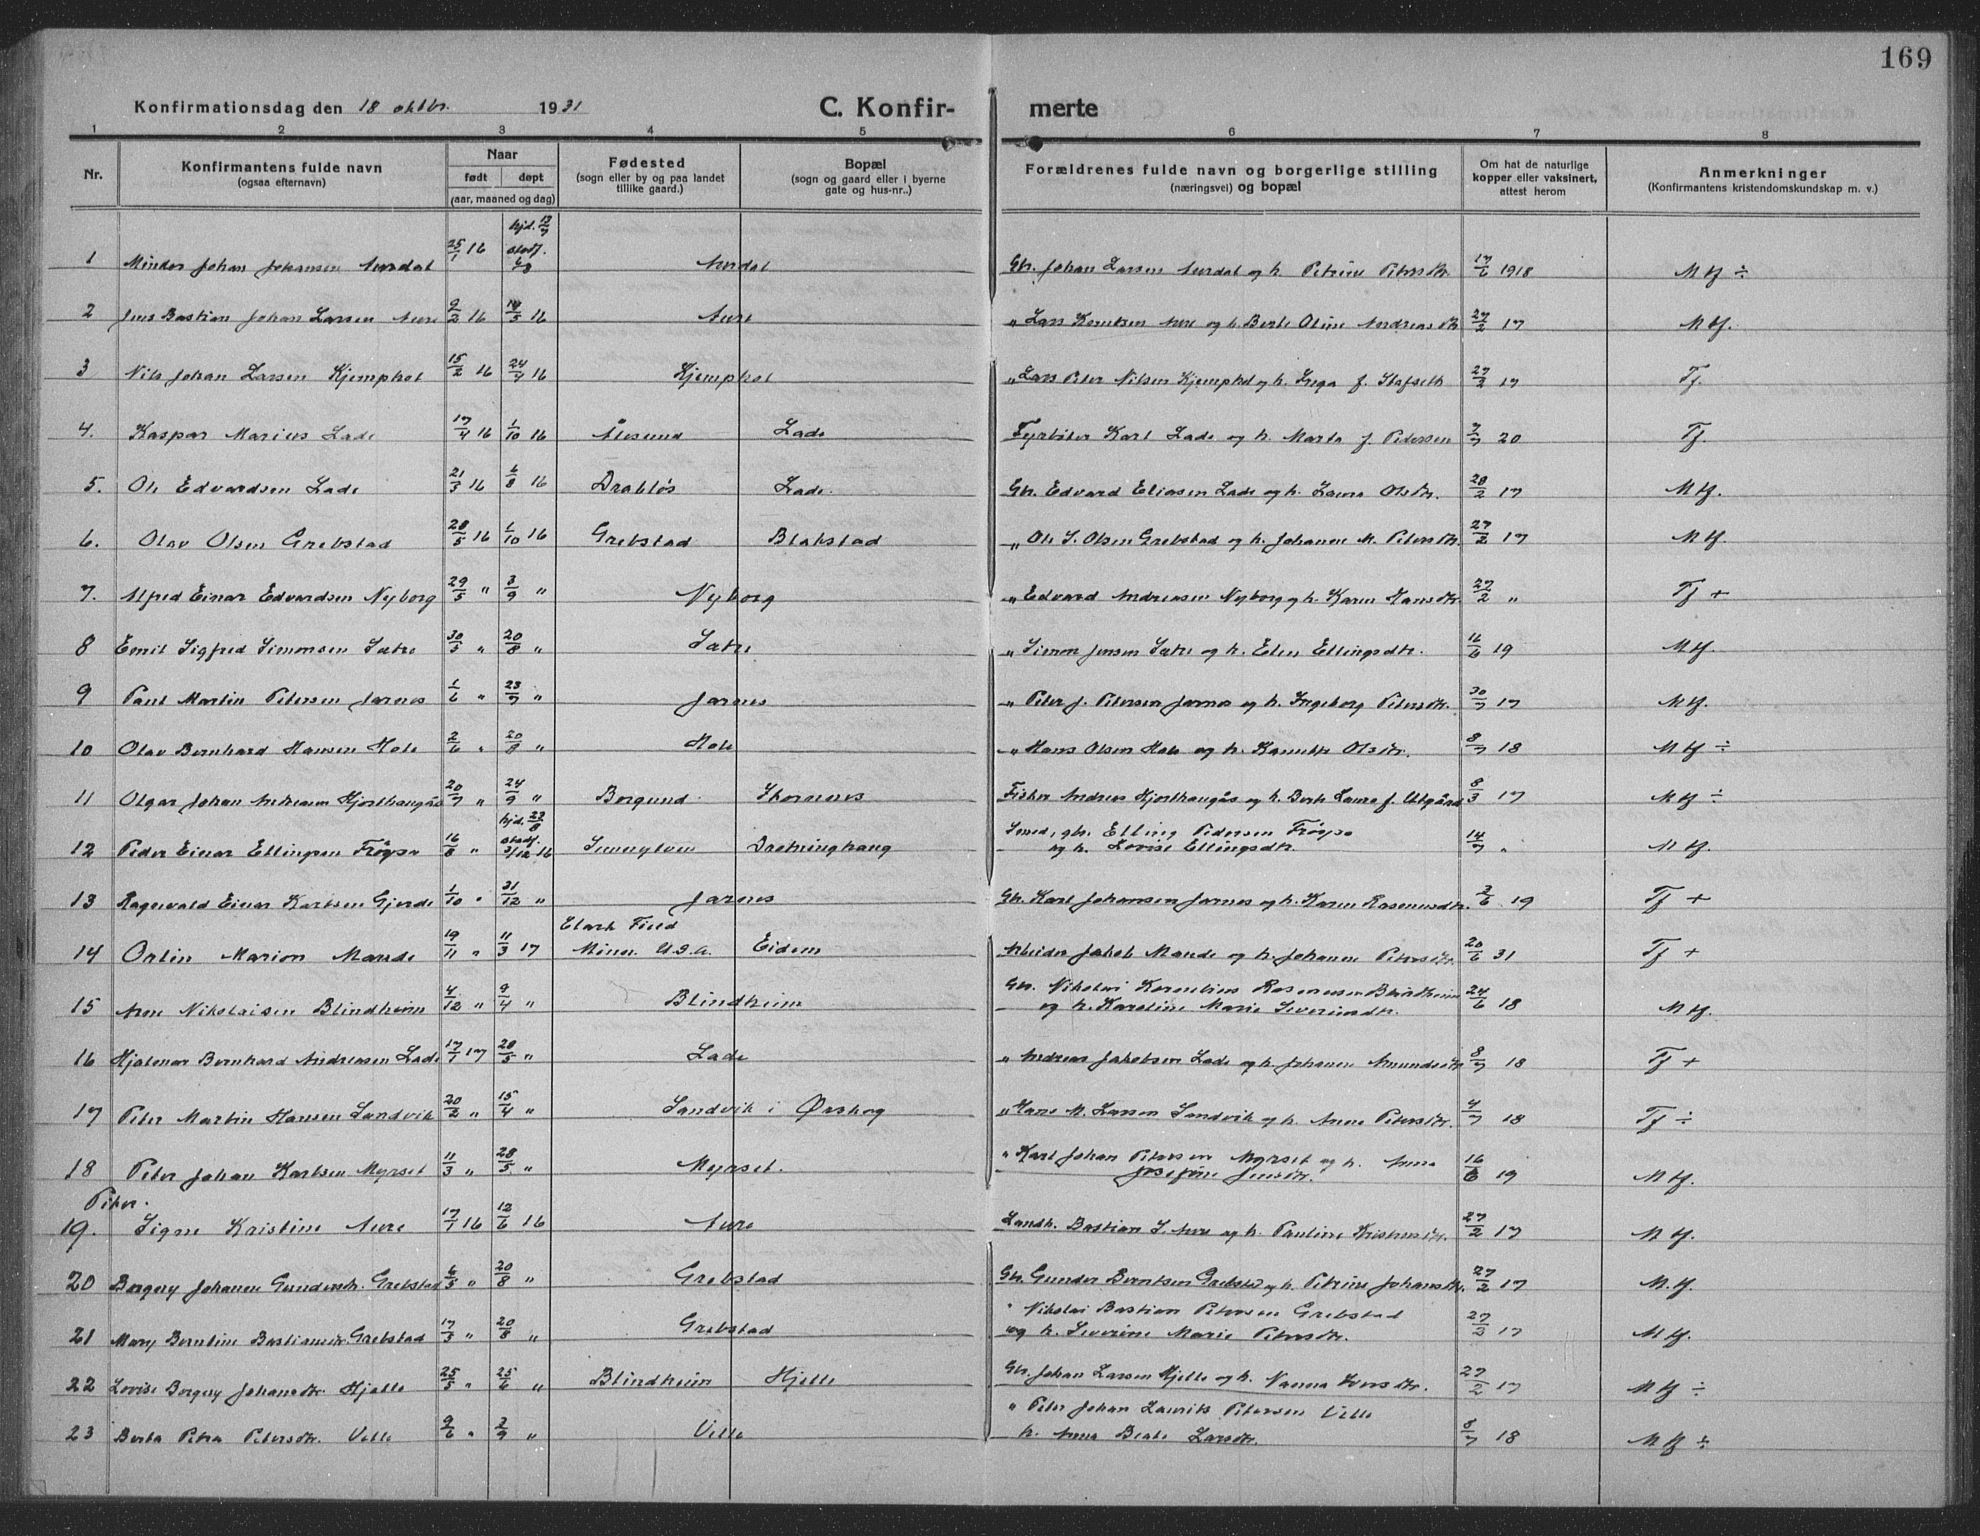 169
Konfirmationsdag den 18 oktbr. 1931 C. Konfir- merte
1 2 3 4 5 6 7 8
Nr. Konfirmantens fulde navn (ogsaa efternavn) Naar født døpt (aar, maaned og dag) Fødested (sogn eller by og paa landet tillike gaard.) Bopæl (sogn og gaard eller i byerne gate og hus-nr..) Forældrenes fulde navn og borgerlige stilling (næringsvei) og bopæl Om hat de naturlige kopper eller vaksinert, attest herom Anmerkninger (Konfirmantens kristendomskundskap m. v.)
1 Johan Johansen Aurdal 25/1 16 hjd. stadf. Aurdal Gbr. Johan Larsen Aurdal og h. Petrine Petersdtr. 17/6 1918 M tf ÷
2 Jens Bastian Johan Larsen Aure 9/2 16 14/5 16 Aure " Lars Knutsen Aure og h. Berte Oline Andreasdtr. 27/2 17 M tf.
3 Nils Johan Larsen Kjemphol 15/2 16 24/4 16 Kjemphol " Lars Peter Nilsen Kjemphol og h. Inga f. Stafseth 27/2 17 Tf.
4. Kaspar Marius Lade 17/4 16 1/10 16 Ålesund Lade Fyrbøter Karl Lade og h. Marta f. Pedersen 7/7 20 Tf.
5. Ole Edvardsen Lade 21/3 16 6/8 16 Drabløs Lade. Gbr. Edvard Eliasen Lade og h. Laura Olsdtr. 28/2 17 M tf.
6. Olav Olsen Grebstad 28/5 16 1/10 16 Grebstad Blakstad " Ole S. Olsen Grebstad og h. Johanne M. Petersdtr. 27/2 17 M tf.
7. Alfred Einar Edvardsen Nyborg 29/5 " 3/9 " Nyborg " Edvard Andreasen Nyborg og h. Karen Hansdtr. 27/2 " Tf +
8 Emil Sigfred Simonsen Sætre 30/5 " 20/8 " Sætre " Simon Jensen Sætre og h. Elen Ellingsdtr. 16/6 19 M tf.
9 Paul Martin Petersen Jarnes 1/6 " 23/7 " Jarnes " Peter J. Petersen Jarnes og h. Ingeborg Petersdtr. 30/7 17 M tf.
10 Olav Bernhard Hansen Hole 2/6 " 20/8 " Hole " Hans Olsen Hole og h. Kanutte Olsdtr. 8/7 18 M tf ÷
11 Olgar Johan Andreasen Hjorthaugås 20/7 " 24/9 " Borgund Skornes Fisker Andreas Hjorthaugås og h. Berte Laura f. Utgård 8/3 17 M tf ÷
12 Peder Einar Ellingsen Frøysa 16/8 " hjd. 27/8 stadf. 3/12 16 Sunnylven Drotninghaug Smed, gbr. Elling Pedersen Frøysa
og h. Lovise Ellingsdtr. 14/7 " M tf.
13 Ragnvald Einar Karlsen Gjerde 1/10 " 31/12 " Jarnes Gbr. Karl Johansen Jarnes og h. Karen Rasmusdtr. 3/6 19 Tf +
14 Orlin Marion Mande 19/11 " 11/3 17 Clark Field
Minn. U.S.A. Eidem Arbeider Jakob Mande og h. Johanne Petersdtr. 20/6 31 Tf +
15 Arne Nikolaisen Blindheim 4/12 " 9/4 " Blindheim Gbr. Nikolai Kornelius Rasmussen Blindheim
og h. Karoline Marie Severinsdtr. 24/6 18 M tf.
16 Hjalmar Bernhard Andreasen Lade 17/1 17 28/5 " Lade " Andreas Jakobsen Lade og h. Johanne Amundsdtr. 8/7 18 Tf +
17 Peter Martin Hansen Sandvik 20/2 " 15/4 " Sandvik i Ørskog " Hans M. Larsen Sandvik og h. Anne Petersdtr. 4/7 18 Tf ÷
18 Peter Johan Karlsen Myrset 11/3 " 28/5 " Myrset. " Karl Johan Petersen Myrset og h. Anna
Josefine Jensdtr. 16/6 19 M tf.
Piker.
19. Signe Kristine Aure 17/1 16 12/6 16 Aure Landh. Bastian S. Aure og h. Pauline Kristensdtr. 27/2 17 M tf.
20 Borgny Johanne Gundersdtr. Grebstad 6/5 " 20/8 " Grebstad Gbr. Gunder Berntsen Grebstad og h. Petrine Johansdtr. 27/2 17 M. tf.
21 Mary Berntine Bastiansdtr. Grebstad 17/3 " 20/8 " Grebstad " Nikolai Bastian Petersen Grebstad
og h. Severine Marie Petersdtr. 27/2 17 M tf.
22 Lovise Borgny Johansdtr. Hjelle 25/5 " 25/6 " Blindheim Hjelle Gbr. Johan Larsen Hjelle og h. Nanna Iversdtr. 27/2 17 M tf ÷
23 Berta Petra Petersdtr. Velle 9/6 " 2/9 " Velle " Peter Johan Laurits Petersen Velle
h. Anna Beate Larsdtr. 8/7 18 M tf ÷